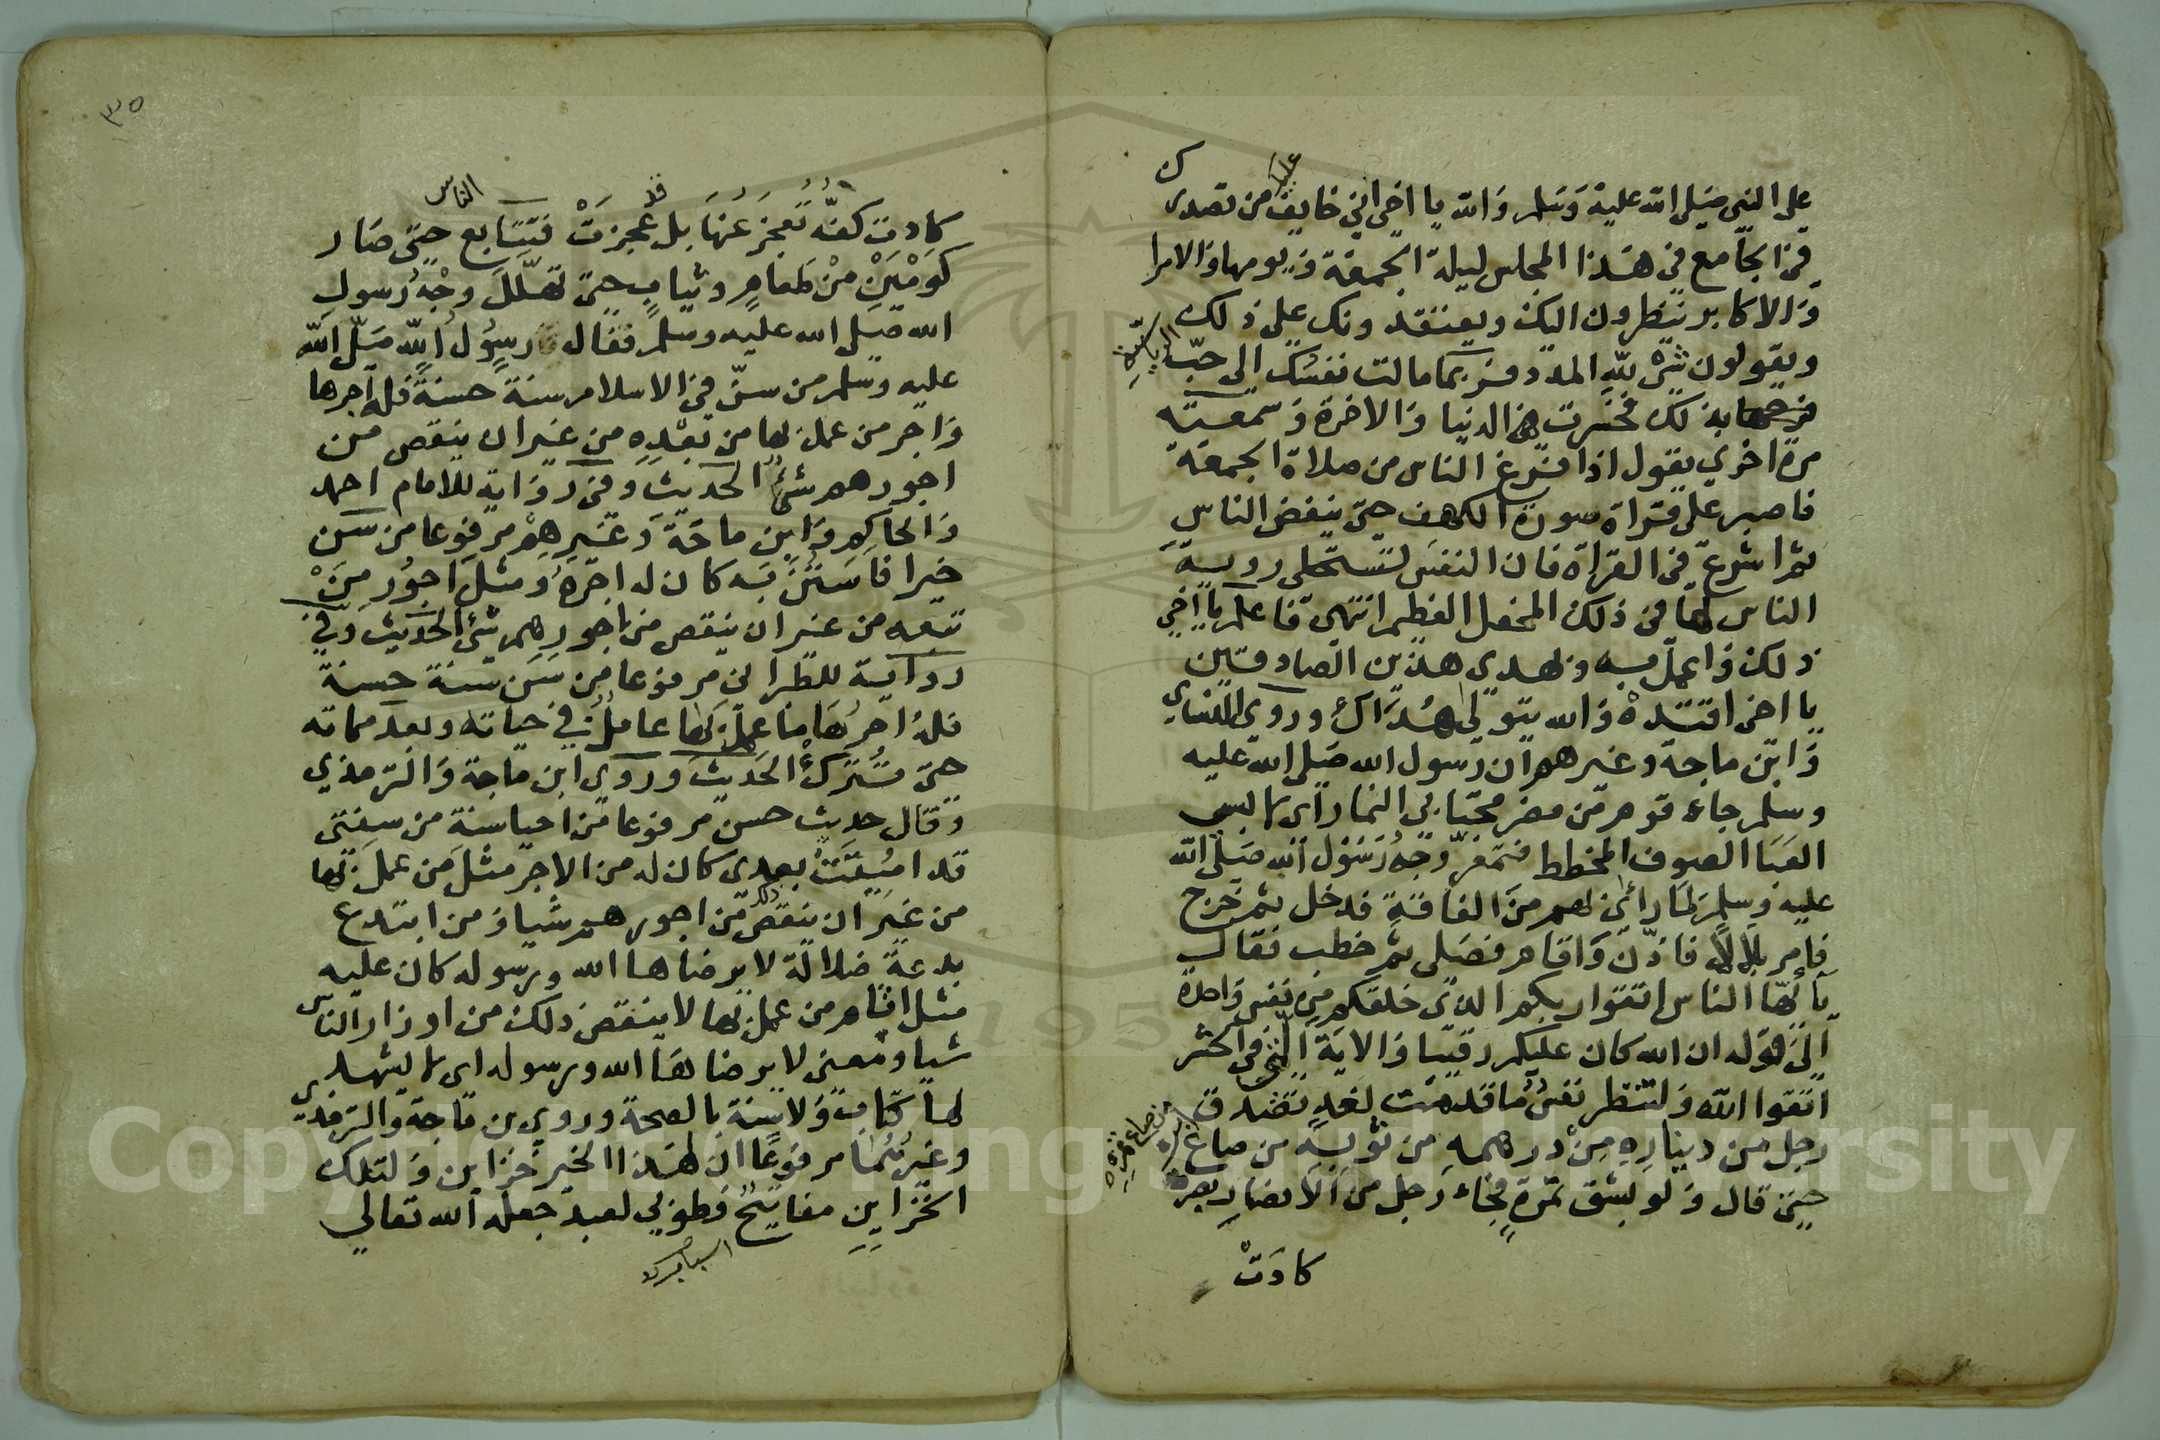 على النبي صلى الله عليه وسلم والله يا اخي اني خايف عليك من تصدرك
في الجامع في هذا المجلس ليلة الجمعة ويومها والامرا
والاكابر ينظرون اليك ويعتقدونك على ذلك
ويقولون شي لله المدد فربما مالت نفسك الى حب الرياسة
فرحها بذلك فخسرت الدنيا والاخرة وسمعته
مرة اخري يقول اذا فرغ الناس من صلاة الجمعة
فاصبر على قراة سورة الكهف حتى ينفض الناس
ثم اشرع في القراة فان النفس تستحلى روية
الناس لها في ذلك المحفل العظيم انتهى فاعلم يا اخي
ذلك واعمل به وبهدي هذين الصادقين
يا اخي اقتده والله يتولى هداك وروي النساي
وابن ماجة وغيرهم ان رسول الله صلى الله عليه
وسلم جاء قوم من مضر مجتابي النمار اي لابسي
العبا الصوف المخطط فتمعر وجه رسول الله صلى الله
عليه وسلم لما راى بهم من الفاقة فدخل ثم خرج
فامر بلالا فاذن واقام فصلى ثم خطب فقال
يا ايها الناس اتقوا ربكم الذي خلقكم من نفس واحدة
الى قوله ان الله كان عليكم رقيبا والاية التي في الحشر
اتقوا الله ولتنظر نفس ما قدمت لغد تصدق
رجل من ديناره من درهمه من ثوبه من صاع بره من صاع تمره
حتى قال ولو بشق تمرة فجاء رجل من الانصار بصرة
كادت
٣٥
كادت كفه تعجز عنها بل قد عجزت فتتابع الناس حتى صار
كومين من طعام وثياب حتى تهلل وجه رسول
الله صلى الله عليه وسلم فقال رسول الله صلى الله
عليه وسلم من سن في الاسلام سنة حسنة فله اجرها
واجر من عمل بها من بعده من غير ان ينقص من
اجورهم شي الحديث وفي رواية للامام احمد
والحاكم وابن ماجة وغيرهم مرفوعا من سن
خيرا فاستن به كان له اجره ومثل اجور من
تبعه من غير ان ينقص من اجورهم شي الحديث وفي
رواية للطبراني مرفوعا من سن سنة حسنة
فله اجرها ما عمل بها عامل في حياته وبعد مماته
حتى تترك الحديث وروي ابن ماجة والترمذي
وقال حديث حسن مرفوعا من احيا سنة من سنتي
قد اميتت بعدي كان له من الاجر مثل من عمل بها
من غير ان ينقص ذلك من اجورهم شيا ومن ابتدع
بدعة ضلالة لا يرضاها الله ورسوله كان عليه
مثل اثام من عمل بها لا ينقص ذلك من اوزار الناس
شيا ومعنى لا يرضاها الله ورسوله اي لا يشهد
لها كتاب ولا سنة بالصحة وروي بن ماجة والترمذي
وغيرهما مرفوعا ان لهذا الخير خزاين ولتلك
الخزاين مفاتيح فطوبي لعبد جعله الله تعالي